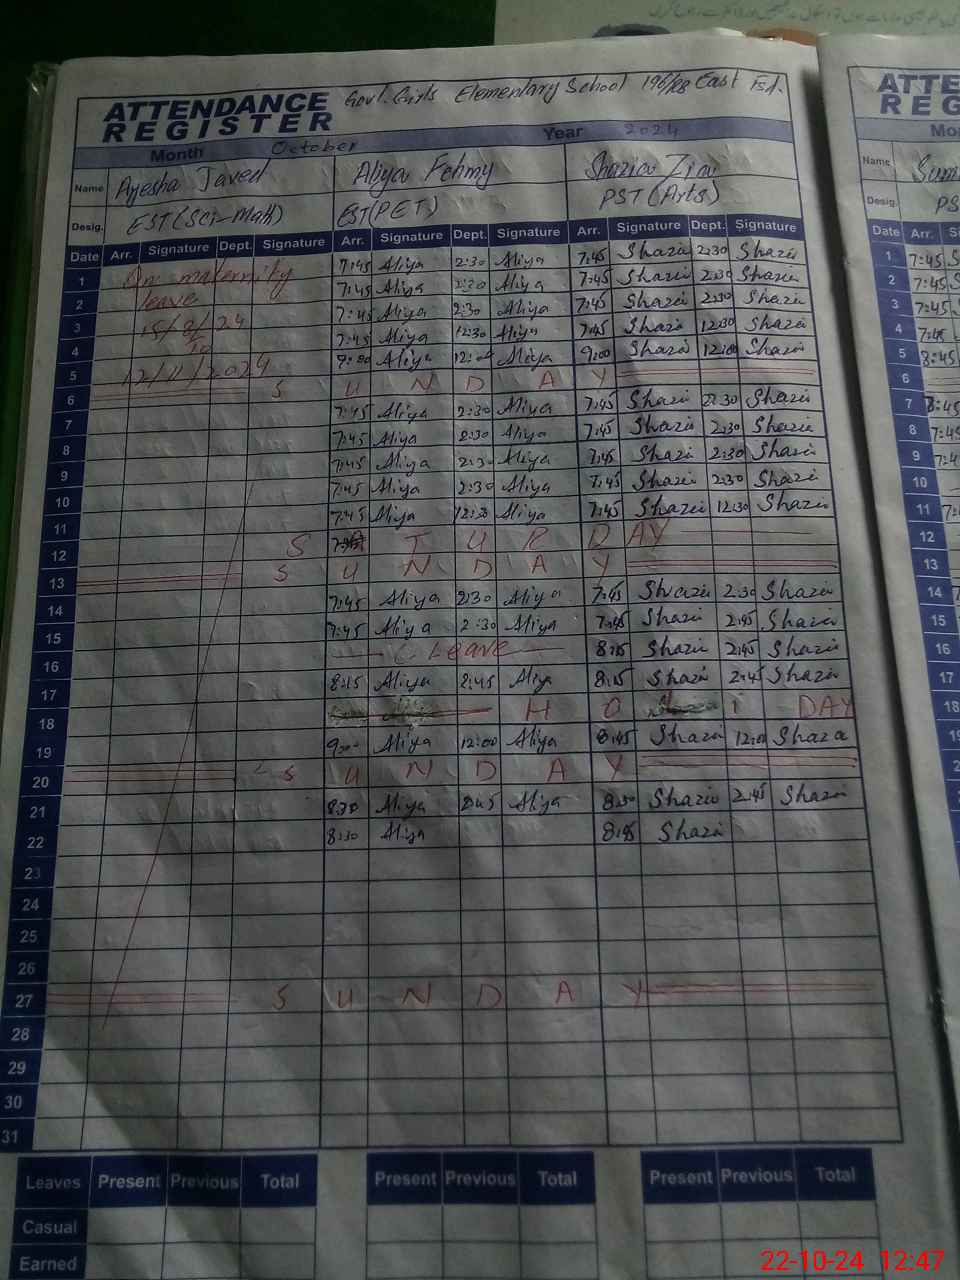 ATTENDANCE REGISTER Govt. Girls Elementary School 196/RB East Fsd.
Month October Year 2024
Name Ayesha Javed Aliya Fehmy Shazia Zia
Desig. EST(Sci-Math) EST(PET) PST(Arts)
Date Arr. Signature Dept. Signature Arr. Signature Dept. Signature Arr. Signature Dept. Signature
1 On maternity 7:45 Aliya 2:30 Aliya 7:45 Shazii 2:30 Shazii
2 leave 7:45 Aliya 2:30 Aliya 7:45 Shazii 2:30 Shazii
3 15/8/24 7:45 Aliya 2:30 Aliya 7:45 Shazii 2:30 Shazii
4 To 7:45 Aliya 12:30 Aliya 7:45 Shazii 12:30 Shazii
5 12/11/2024 9:00 Aliya 12:00 Aliya 9:00 Shazii 12:00 Shazii
6 S U N D A Y
7 7:45 Aliya 2:30 Aliya 7:45 Shazii 2:30 Shazii
8 7:45 Aliya 2:30 Aliya 7:45 Shazii 2:30 Shazii
9 7:45 Aliya 2:30 Aliya 7:45 Shazii 2:30 Shazii
10 7:45 Aliya 2:30 Aliya 7:45 Shazii 2:30 Shazii
11 7:45 Aliya 12:30 Aliya 7:45 Shazii 12:30 Shazii
12 S T U R D AY
13 S U N D A Y
14 7:45 Aliya 2:30 Aliya 7:45 Shazii 2:30 Shazii
15 7:45 Aliya 2:30 Aliya 7:45 Shazii 2:45 Shazii
16 C Leave 8:15 Shazii 2:45 Shazii
17 8:15 Aliya 2:45 Aliya 8:15 Shazii 2:45 Shazii
18 H O L I DAY
19 9:00 Aliya 12:00 Aliya 8:45 Shazii 12:00 Shaza
20 S U N D A Y
21 8:30 Aliya 2:45 Aliya 8:30 Shazii 2:45 Shazii
22 8:30 Aliya 8:45 Shazii
23
24
25
26
27 S U N D A Y
28
29
30
31
Leaves Present Previous Total Present Previous Total Present Previous Total
Casual
Earned
ATTE
REG
Mo
Name
Desig. PS
Date Arr. Si
1 7:45
2 7:45
3 7:45
4 7:45
5 8:45
6
7 8:45
8 7:45
9 7:4
10
11
12
13
14
15
16
17
18
22-10-24 12:47